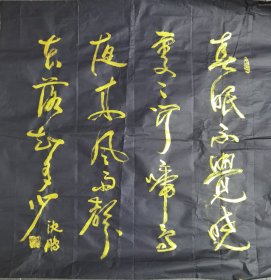 春眠不覺曉
處々聞啼鳥
夜来風雨聲
花落知多少
沈鹏